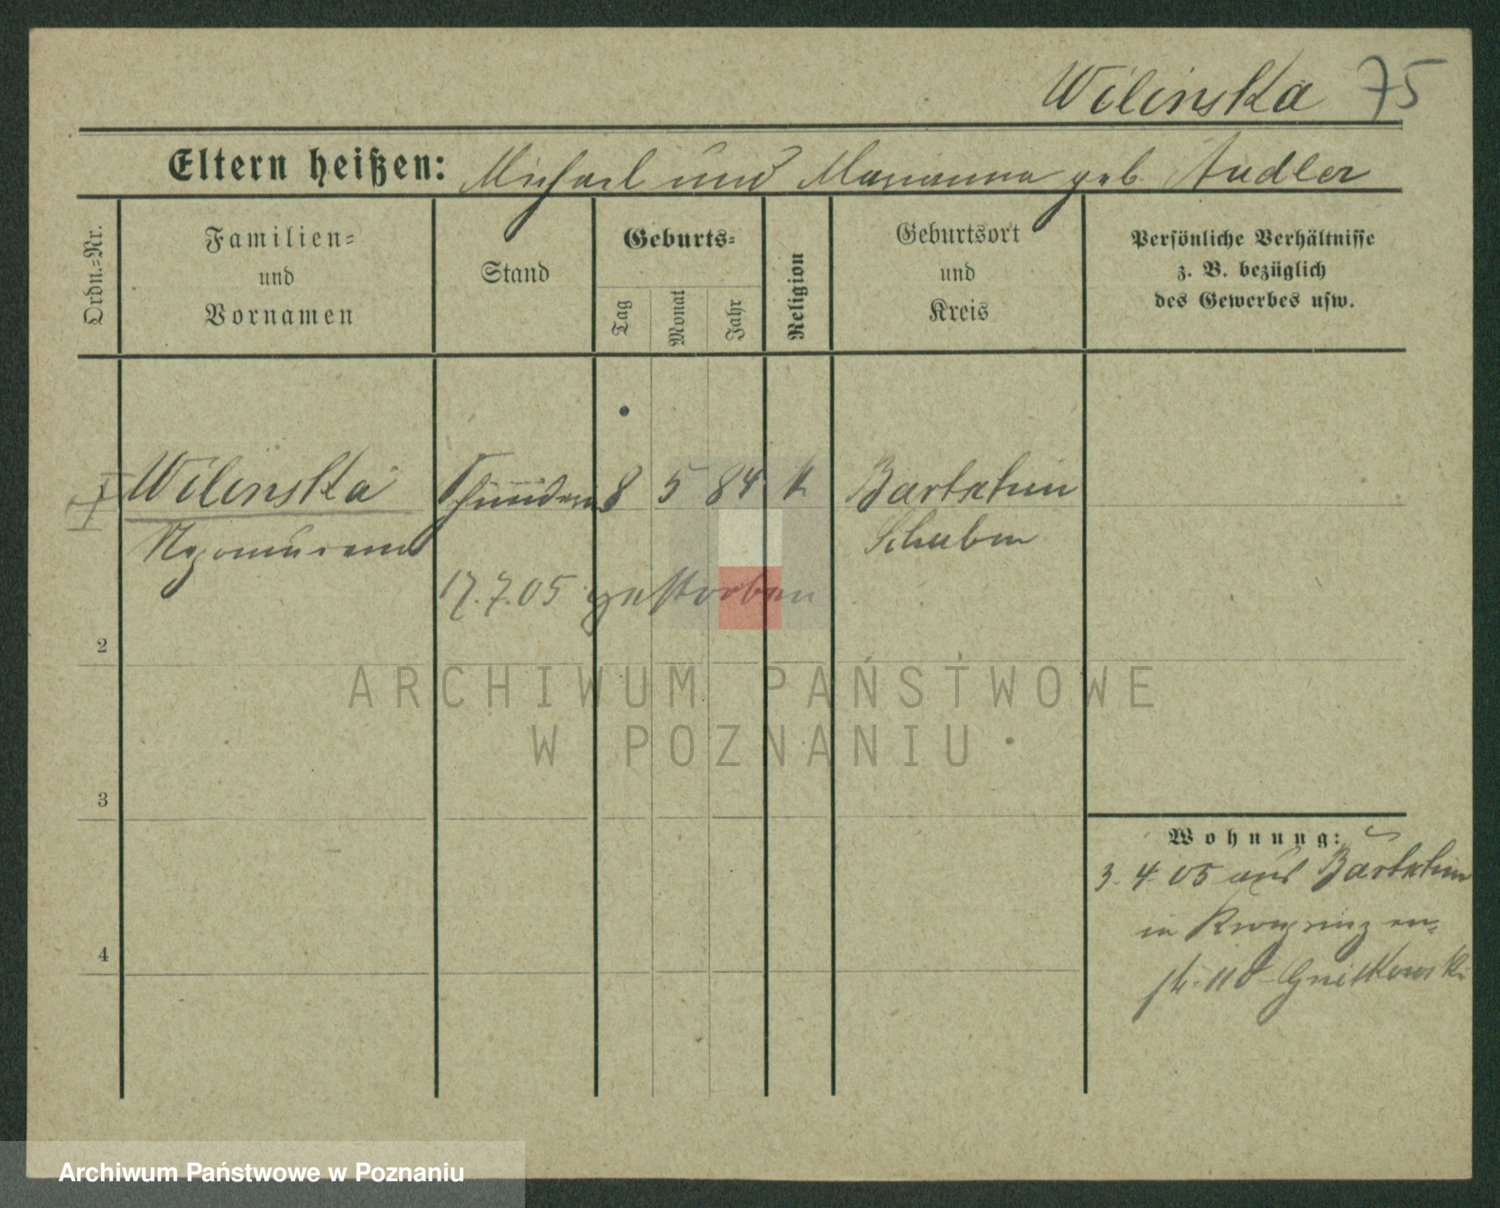 Wilinska 75
Eltern heißen: Michael und Marianna geb. Audler
Ordn.=Nr.
Familien=
und
Vornamen
Stand
Geburts=
Tag
Monat
Jahr
Religion
Geburtsort
und
Kreis
Persönliche Verhältnisse
z. B. bezüglich
des Gewerbes usw.
Wilinska 8 5 84 k. Bartschin
Schubin
17.7.05 gestorben
2
3
4
Wohnung:
3. 4. 05 aus Bartschin
in
110 Gnietkowski
ARCHIWUM PAŃSTWOWE
W POZNANIU
Archiwum Państwowe w Poznaniu